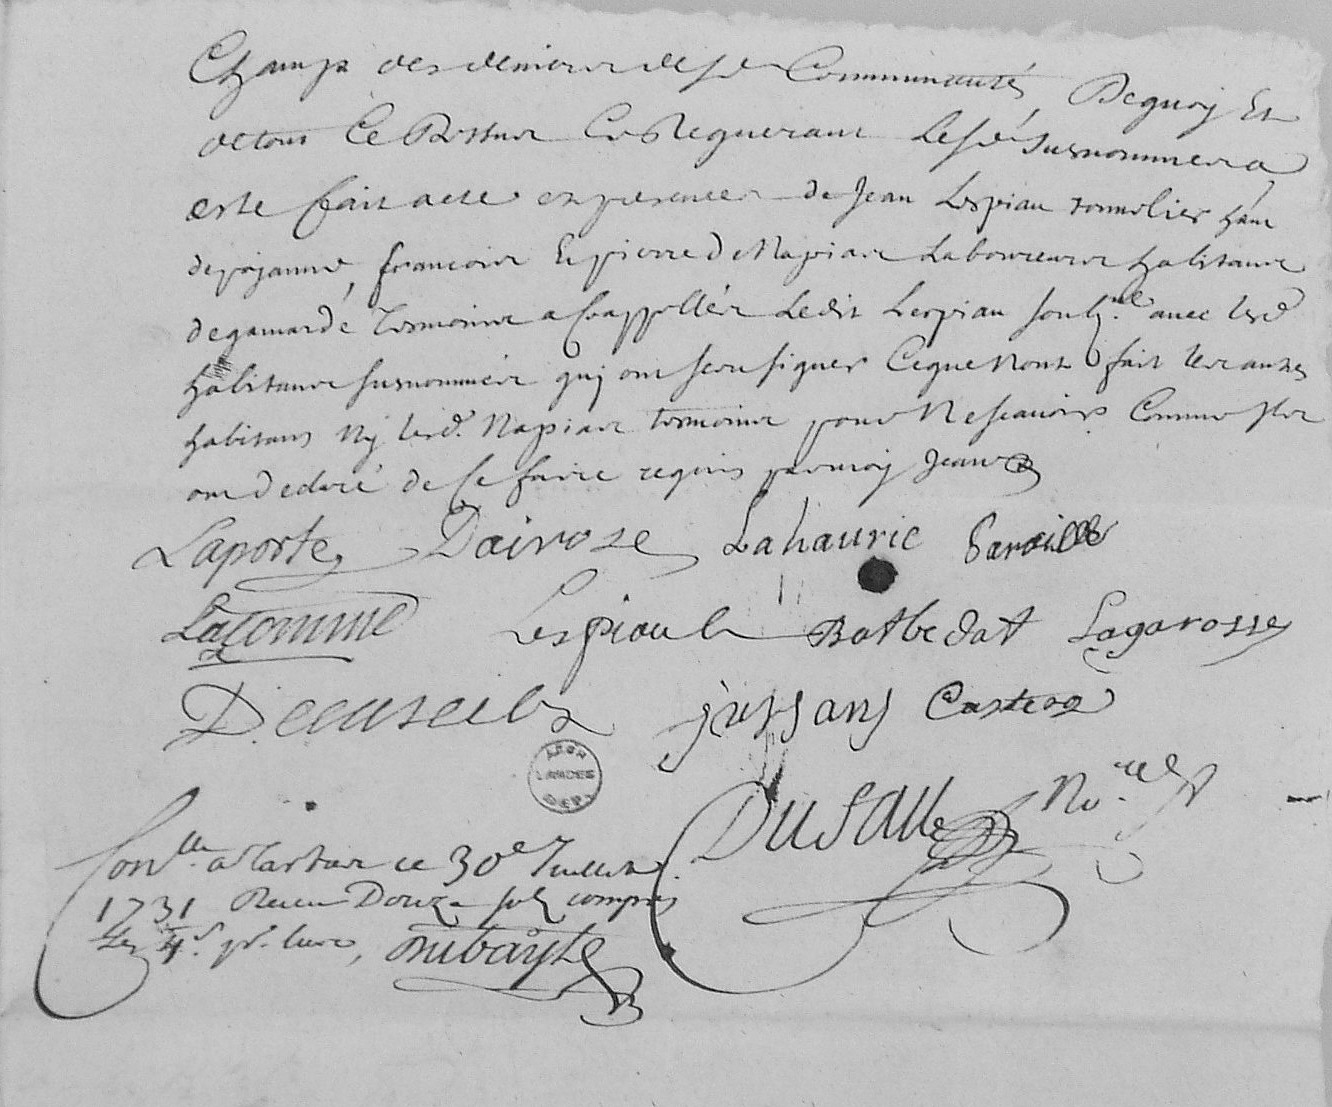 Champs des deniers de lad Communauté, Dequoy Et
detout Ce Dessus Ce Requerant Lesd. susnommes a
este fait acte en presences de Jean Lespiau tonnelier hant
depoyanne, francois Et pierre De Napias Laboureurs habitans
degamarde temoins a Ce appellés Ledit Lespiau soubz.né avec lesd.
habitans susnommés quj ont sceu signer Ceque Nont fait les autres
habitans Nj lesd. Napias temoins pour Ne scavoir Comme Ils
ont declaré de Ce faire requis par moy
Laporte Dairose Lahaurie
Lacomme Lespiau Batbedat Lagarosse
jussans Castera
ARCH LANDES DEP
Dusault No.re
Con.lle a Tartas ce 30e Juillet
1731 Receu Douze sols compris
les 4 s.